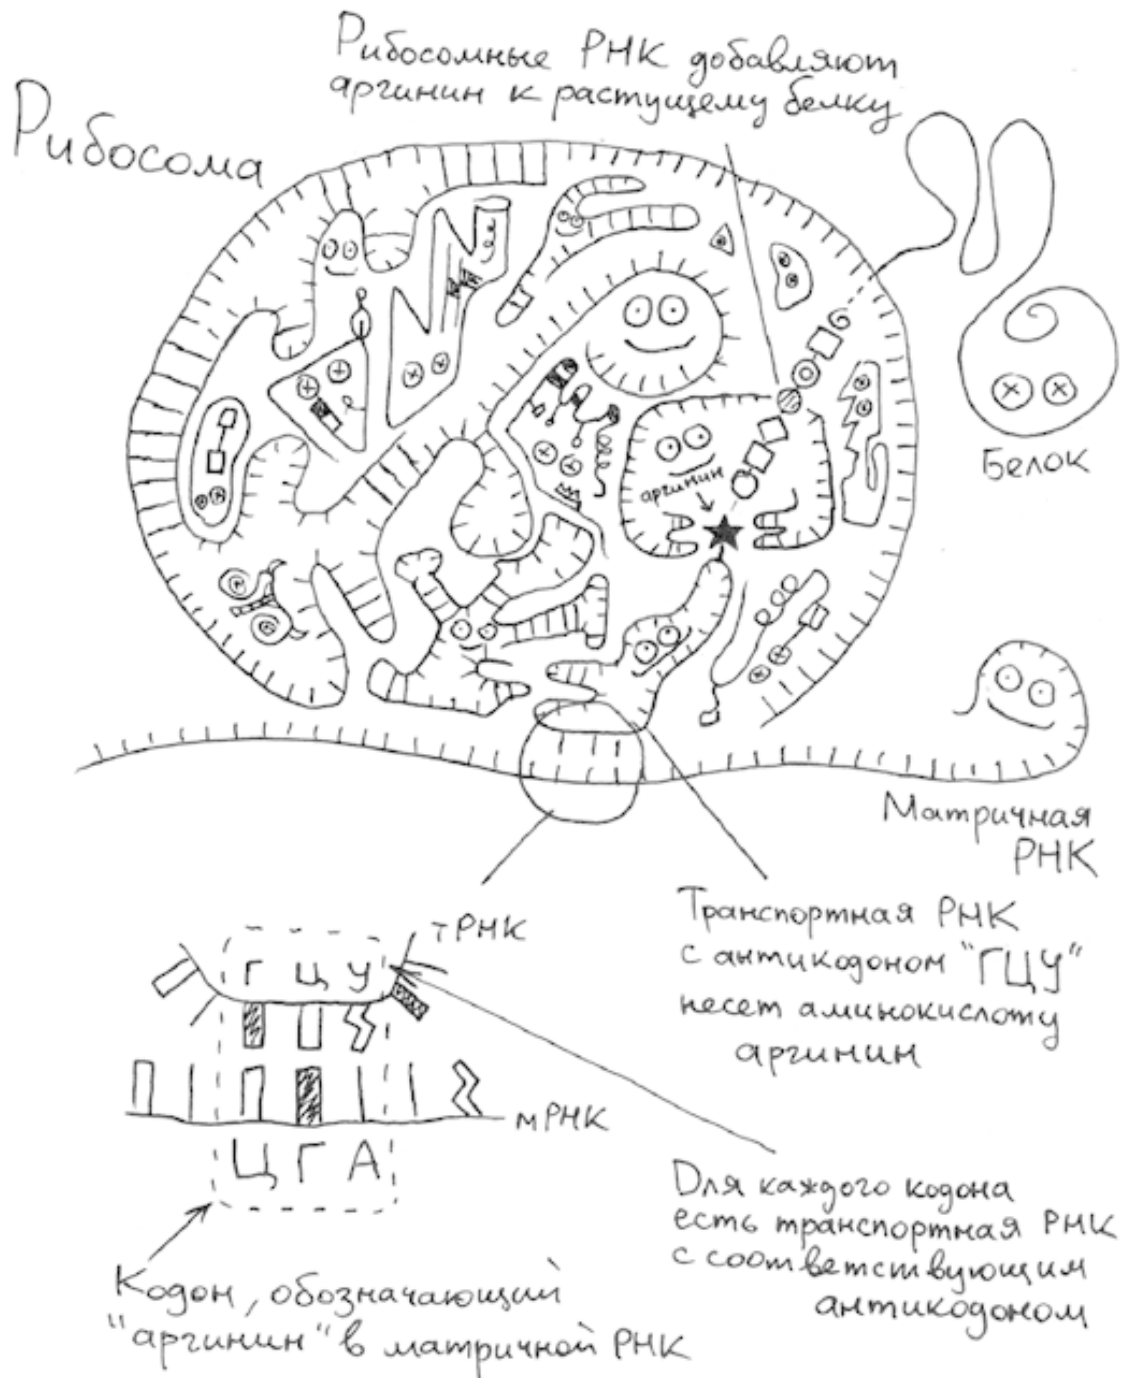 Рибосомные РНК добавляют
аргинин к растущему белку
Рибосома
Белок
аргинин
Матричная
РНК
Транспортная РНК
с антикодоном "ГЦУ"
несет аминокислоту
аргинин
тРНК
Г Ц У
мРНК
Ц Г А
Для каждого кодона
есть транспортная РНК
с соответствующим
антикодоном
Кодон, обозначающий
"аргинин" в матричной РНК